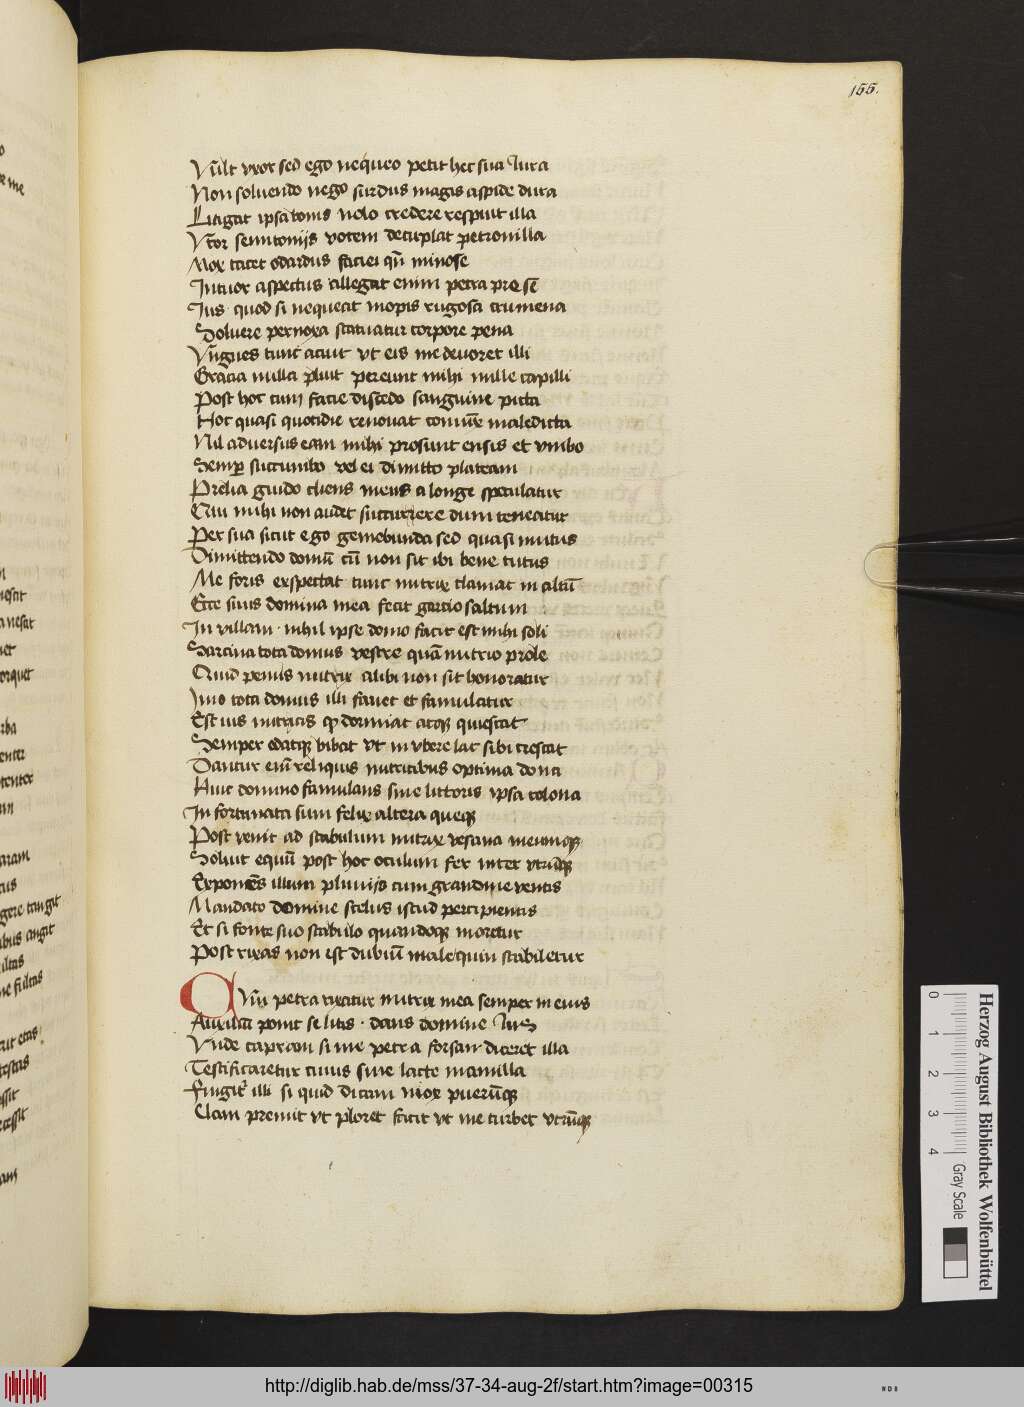 155.
Vult vxor sed ego nequeo petit hec sua Iura
Non soluendo nego surdus magis aspide dura
Litigat ipsa tonis nolo credere respuit illa
Vtor semitonijs votem decuplat petronilla
Mox tacet odardus faciei qn minose
Intuor aspectus allegat enim petra pro se
Ius quod si nequeat inopis rugosa crumena
Soluere pernoxa statuatur corpore pena
Vngues tunc acuit vt eis me deuoret illi
Gracia nulla pluit pereunt mihi mille capilli
Post hoc cum facie discedo sanguine picta
Hoc quasi quotidie renouat maledicta
Nil aduersus eam mihi prosunt ensis et vmbo
Semper succumbo vel ei dimitto plateam
Prelia guido cliens meus a longe speculatur
Cui mihi non audet succurrere dum teneatur
Per sua sicut ego gemebunda sed quasi mutus
Dimittendo domū cū non sit ibi bene tutus
Me foris exspectat tunc nutrix clamat in altū
Ecce suus domina mea fecit garcio saltum
In villam · nihil ipse domo facit est mihi soli
Sarcina tota domus vestre quā nutrio prole
Quid penuis nutrix alibi non sit honoratur
Imo tota domus illi fauet et famulatur
Est ius nutricis qƺ dormiat atqƺ quiescat
Semper edatqƺ bibat vt in vbere lac sibi crescat
Dantur em̄ reliquis nutricibus optima dona
Huic domino famulans sine littoris ipsa colona
Infortunata sum felix altera queqƺ
Post venit ad stabulum nutrix vesana meumqƺ
Soluit equū post hoc oculum fex inter vtrūqƺ
Exponens illum pluuijs cum grandine ventis
Mandato domine scelus istud percipientis
Et si fonte suo stabulo quandoqƺ moretur
Post rixas non est dubiū male quin stabiletur
Cvm petra rixatur nutrix mea semper in eius
Auxiliū ponit se litis · dans domine Ius
Vnde capram si me petra forsan diceret illa
Testificaretur cuius sine lacte mamilla
Fingitʳ illi si quid dicam mox puerūqƺ
Clam premit vt ploret facit vt me turbet vtrūqƺ
Herzog August Bibliothek Wolfenbüttel
0 1 2 3 4
Gray Scale
http://diglib.hab.de/mss/37-34-aug-2f/start.htm?image=00315